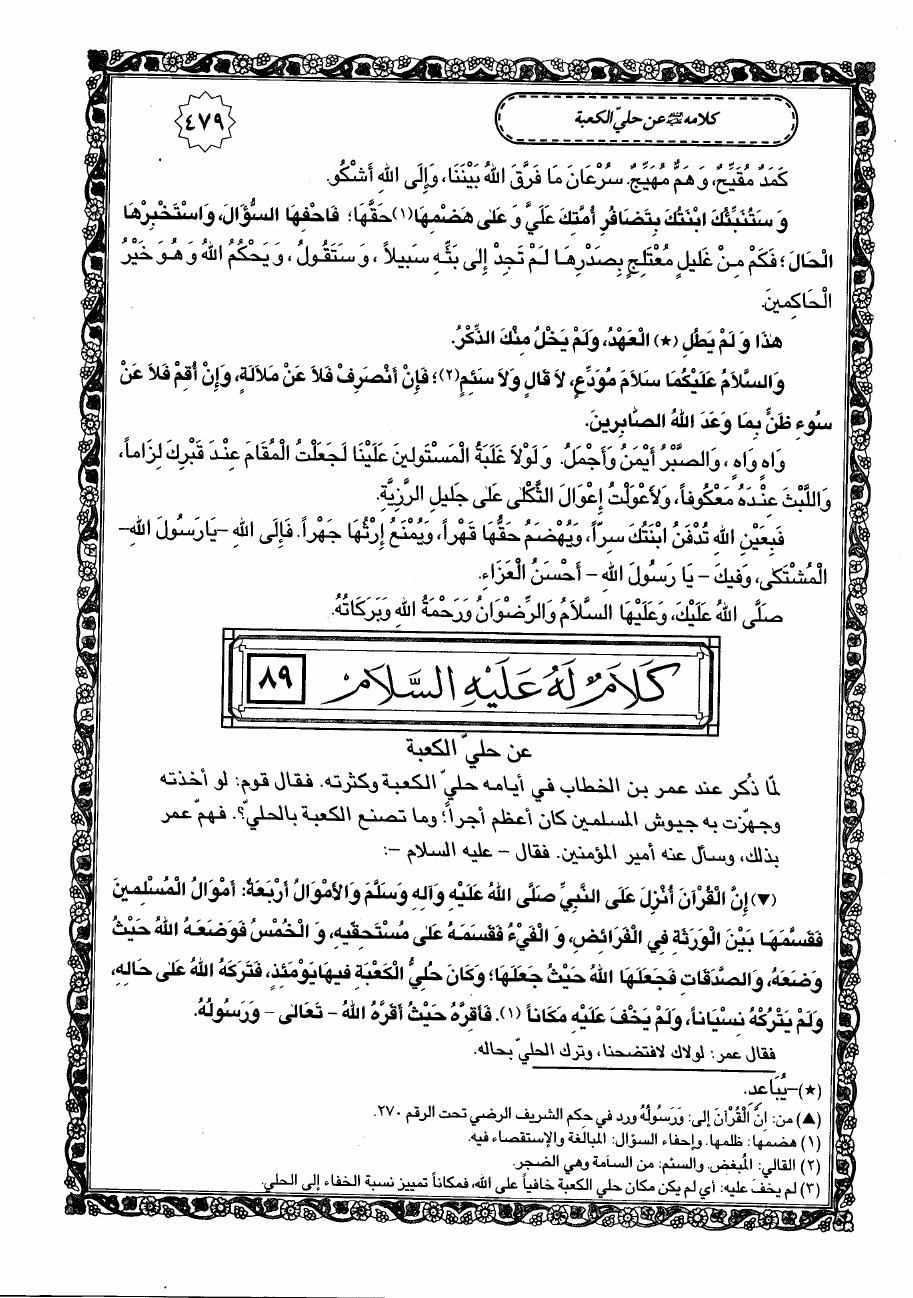 كلامه عن حليّ الكعبة
٤٧٩
كَمَدٌ مُقَيِّحٌ، وَهَمٌّ مُهَيِّجٌ. سُرْعَانَ مَا فَرَّقَ اللهُ بَيْنَنَا، وَإِلَى اللهِ أَشْكُو.
وَ سَتُنَبِّئُكَ ابْنَتُكَ بِتَضَافُرِ أُمَّتِكَ عَلَيَّ وَ عَلىٰ هَضْمِهَا(١)حَقَّهَا؛ فَاحْفِهَا السُّؤَالَ، وَاسْتَخْبِرْهَا
الْحَالَ؛ فَكَمْ مِنْ غَلِيلٍ مُعْتَلِجٍ بِصَدْرِهَا لَمْ تَجِدْ إِلى بَثِّهِ سَبِيلاً، وَ سَتَقُولُ، وَ يَحْكُمُ اللهُ وَ هُوَ خَيْرُ
الْحَاكِمِينَ.
هٰذَا وَ لَمْ يَطُلِ (★) الْعَهْدُ، وَلَمْ يَخْلُ مِنْكَ الذِّكْرُ.
وَالسَّلاَمُ عَلَيْكُمَا سَلاَمَ مُوَدِّعٍ، لاَ قَالٍ وَلاَ سَئِمٍ(٢)؛ فَإِنْ أَنْصَرِفْ فَلاَ عَنْ مَلاَلَةٍ، وَإِنْ أُقِمْ فَلاَ عَنْ
سُوءِ ظَنٍّ بِمَا وَعَدَ اللهُ الصَّابِرِينَ.
وَاهٍ وَاهٍ، وَالصَّبْرُ أَيْمَنُ وَأَجْمَلُ. وَ لَوْلاَ غَلَبَةُ الْمُسْتَوْلِينَ عَلَيْنَا لَجَعَلْتُ الْمُقَامَ عِنْدَ قَبْرِكَ لِزَاماً،
وَ اللَّبْثَ عِنْدَهُ مَعْكُوفاً، وَلأَعْوَلْتُ إِعْوَالَ الثَّكْلىٰ عَلىٰ جَلِيلِ الرَّزِيَّةِ.
فَبِعَيْنِ اللهِ تُدْفَنُ ابْنَتُكَ سِرّاً، وَيُهْضَمُ حَقُّهَا قَهْراً، وَيُمْنَعُ إِرْثُهَا جَهْراً. فَإِلَى اللهِ -يَا رَسُولَ اللهِ-
الْمُشْتَكىٰ، وَفِيكَ - يَا رَسُولَ اللهِ - أَحْسَنُ الْعَزَاءِ.
صَلَّى اللهُ عَلَيْكَ، وَعَلَيْهَا السَّلاَمُ وَالرِّضْوَانُ وَرَحْمَةُ اللهِ وَبَرَكَاتُهُ.
كَلاَمٌ لَهُ عَلَيْهِ السَّلاَم ٨٩
عن حليّ الكعبة
لمّا ذُكر عند عمر بن الخطاب في أيامه حليّ الكعبة وكثرته. فقال قوم: لو أخذته
وجهّزت به جيوش المسلمين كان أعظم أجراً؛ وما تصنع الكعبة بالحليّ؟. فهمّ عمر
بذلك، وسأل عنه أمير المؤمنين. فقال - عليه السلام -:
(▼) إِنَّ الْقُرْآنَ أُنْزِلَ عَلَى النَّبِيِّ صَلَّى اللهُ عَلَيْهِ وَآلِهِ وَسَلَّمَ وَالأَمْوَالُ أَرْبَعَةٌ: أَمْوَالُ الْمُسْلِمينَ
فَقَسَّمَهَا بَيْنَ الْوَرَثَةِ فِي الْفَرَائِضِ، وَ الْفَيْءُ فَقَسَمَهُ عَلىٰ مُسْتَحِقِّيهِ، وَ الْخُمْسُ فَوَضَعَهُ اللهُ حَيْثُ
وَضَعَهُ، وَالصَّدَقَاتِ فَجَعَلَهَا اللهُ حَيْثُ جَعَلَهَا؛ وَكَانَ حَلْيُ الْكَعْبَةِ فِيهَا يَوْمَئِذٍ، فَتَرَكَهُ اللهُ عَلىٰ حَالِهِ،
وَلَمْ يَتْرُكْهُ نِسْيَاناً، وَلَمْ يَخْفَ عَلَيْهِ مَكَاناً (١). فَأَقِرَّهُ حَيْثُ أَقَرَّهُ اللهُ - تَعَالىٰ - وَرَسُولُهُ.
فقال عمر: لولاك لافتضحنا، وترك الحليّ بحاله.
(★)-يُبَاعد.
(▲) من: إِنَّ الْقُرْآنَ إلى: وَرَسُولُهُ ورد في حِكم الشريف الرضي تحت الرقم ٢٧٠.
(١) هضمها: ظلمها. وإحفاء السؤال: المبالغة والإستقصاء فيه.
(٢) القالي: المُبغض. والسئم: من السآمة وهي الضجر.
(٣) لم يخفَ عليه: أي لم يكن مكان حلي الكعبة خافياً على الله، فمكاناً تمييز نسبة الخفاء إلى الحلي.